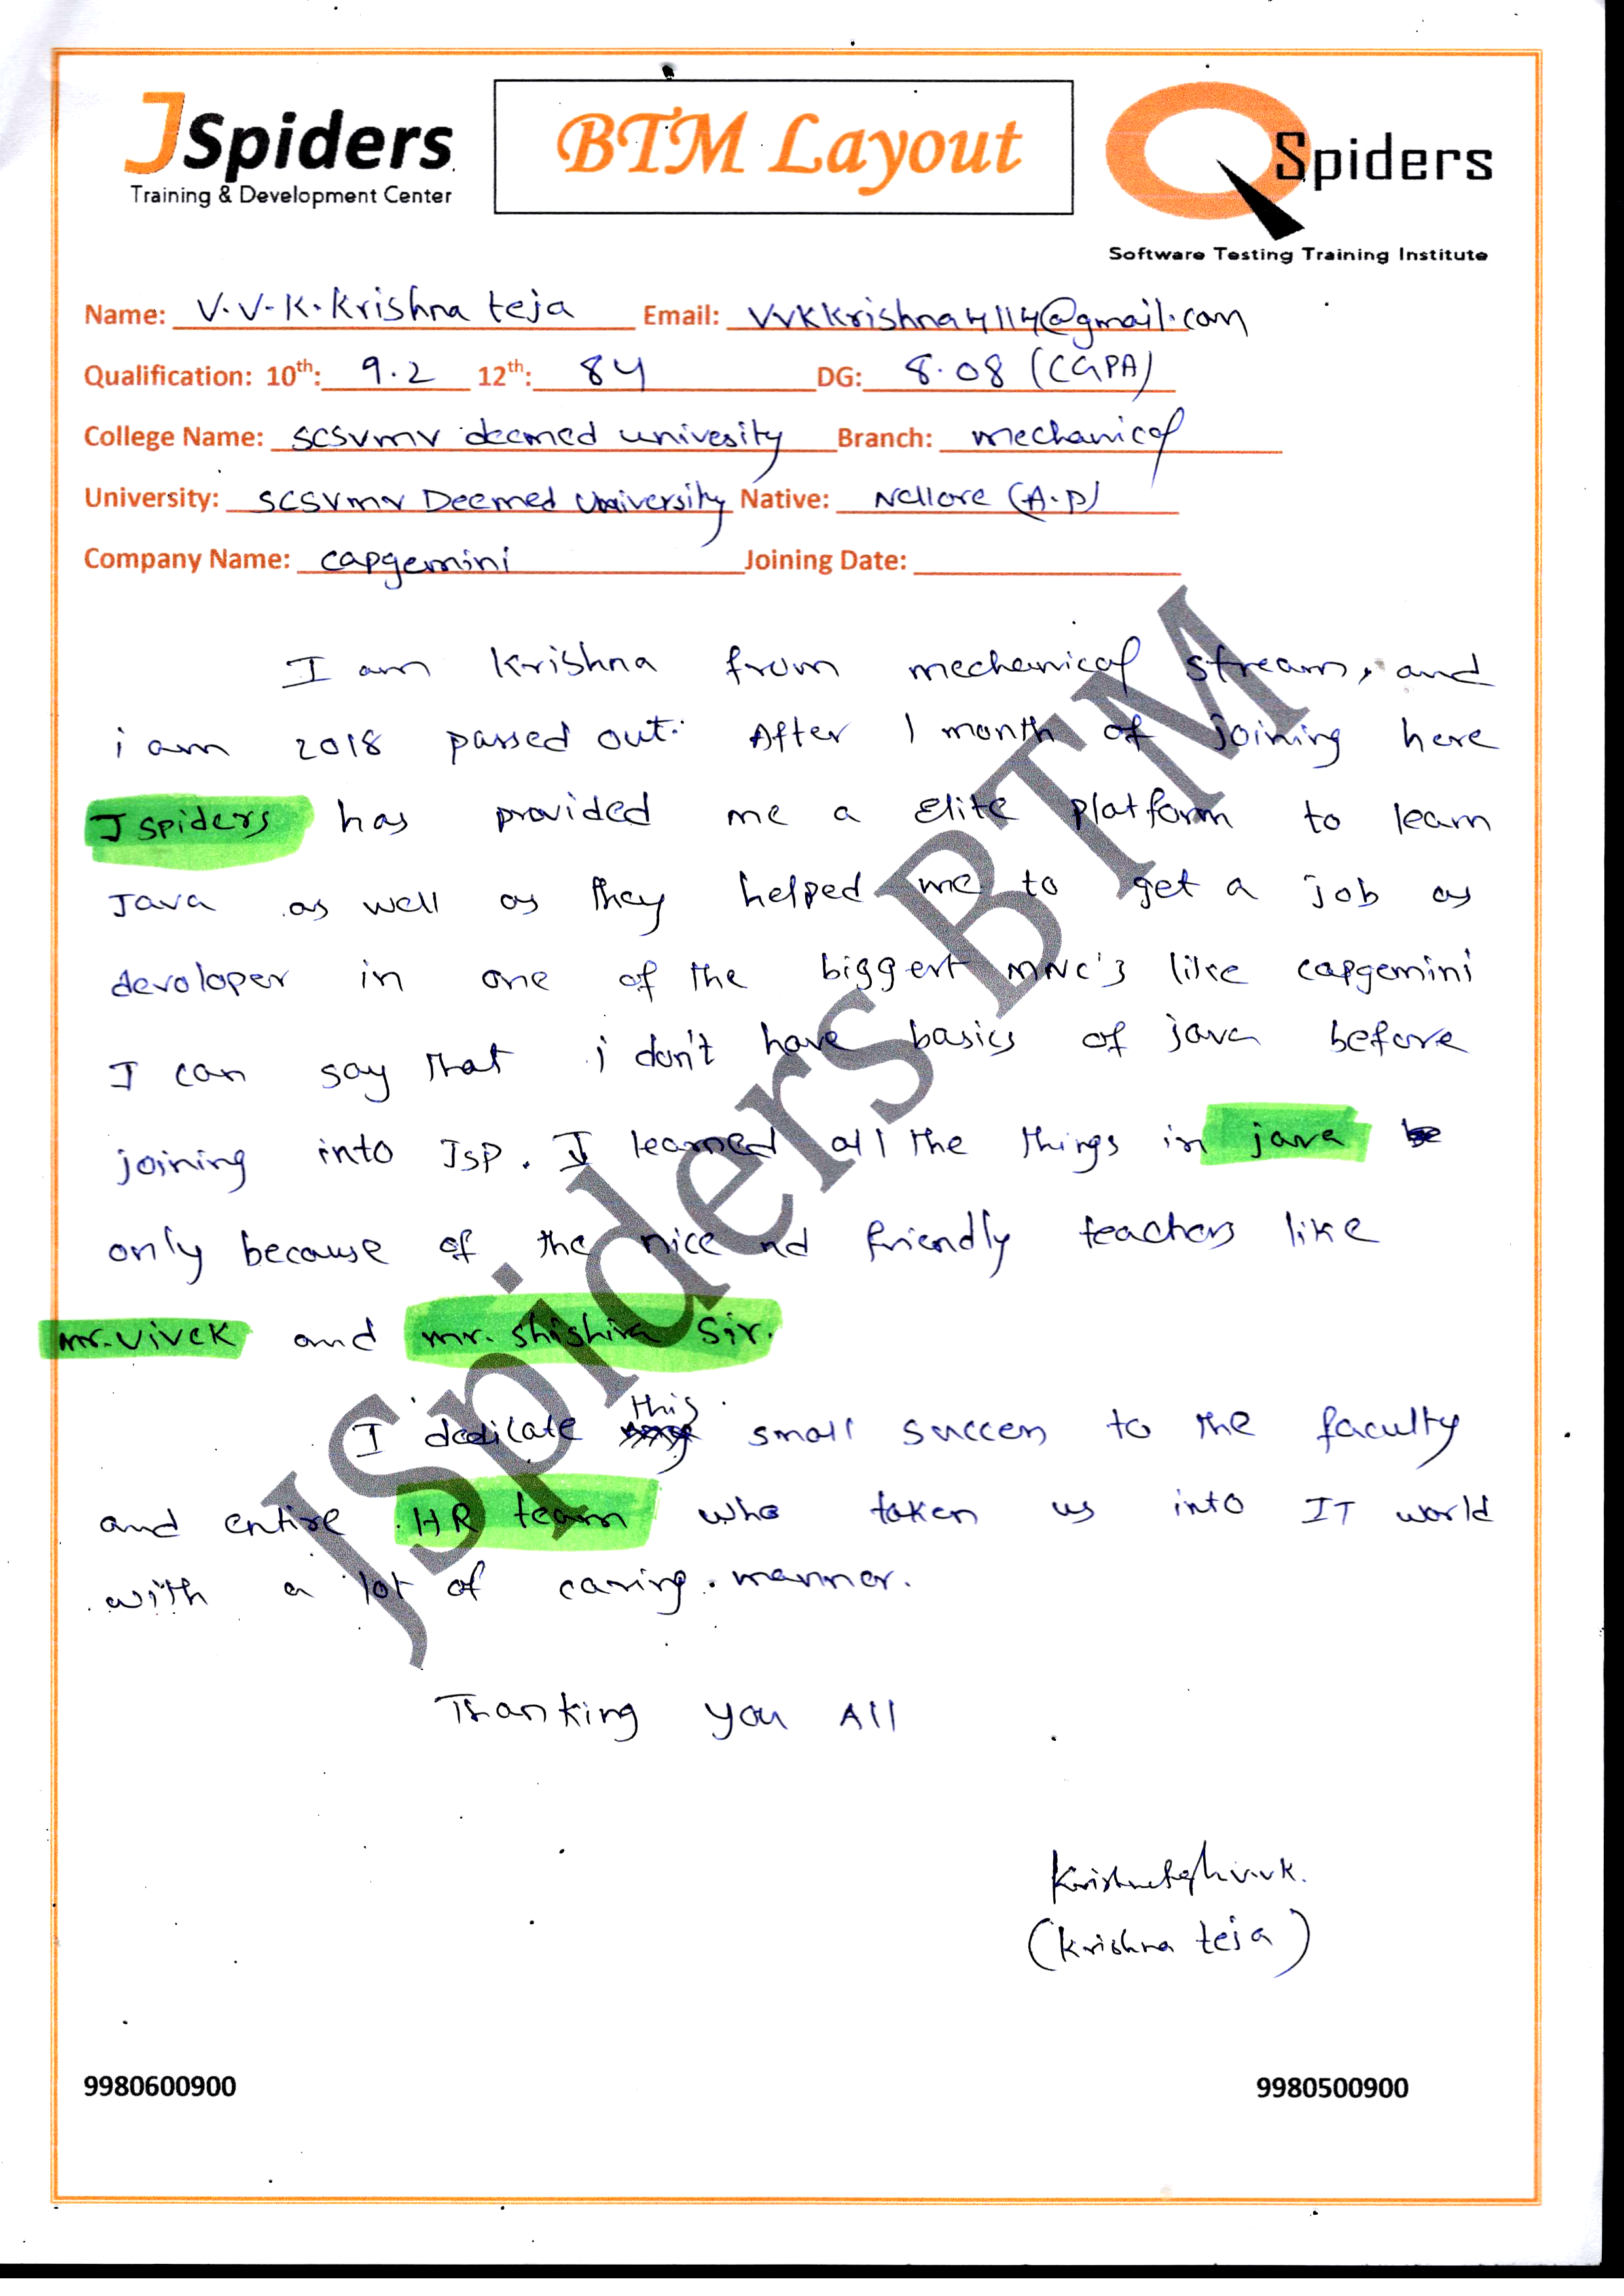 JSpiders
Training & Development Center
BTM Layout
QSpiders
Software Testing Training Institute
Name: V.V.K.Krishna teja Email: vvkkrishna4114@gmail.com
Qualification: 10th: 9.2 12th: 84 DG: 8.08 (CGPA)
College Name: SCSVMV deemed univesity Branch: mechanical
University: SCSVMV Deemed University Native: Nellore (A.P)
Company Name: capgemini Joining Date:
I am Krishna from mechanical stream, and
i am 2018 passed out. After 1 month of joining here
J spiders has provided me a Elite platform to learn
Java as well as they helped me to get a job as
devoloper in one of the biggest MNC's like capgemini
I can say that i don't have basics of java before
joining into JSP. I learned all the things in java
only because of the nice nd friendly teachers like
mr.vivek and mr. shishira Sir.
I dedicate this small success to the faculty
and entire HR team who taken us into IT world
with a lot of caring manner.
Thanking you All
(Krishna teja)
9980600900 9980500900
JSpiders BTM